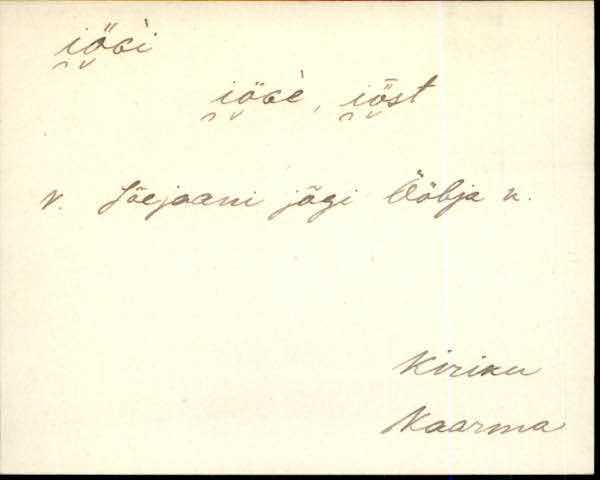 i̯öɢi
i̯öɢe, i̯öst
v. Jõejaani jõgi Ööbja v.
Kiriku
Kaarma